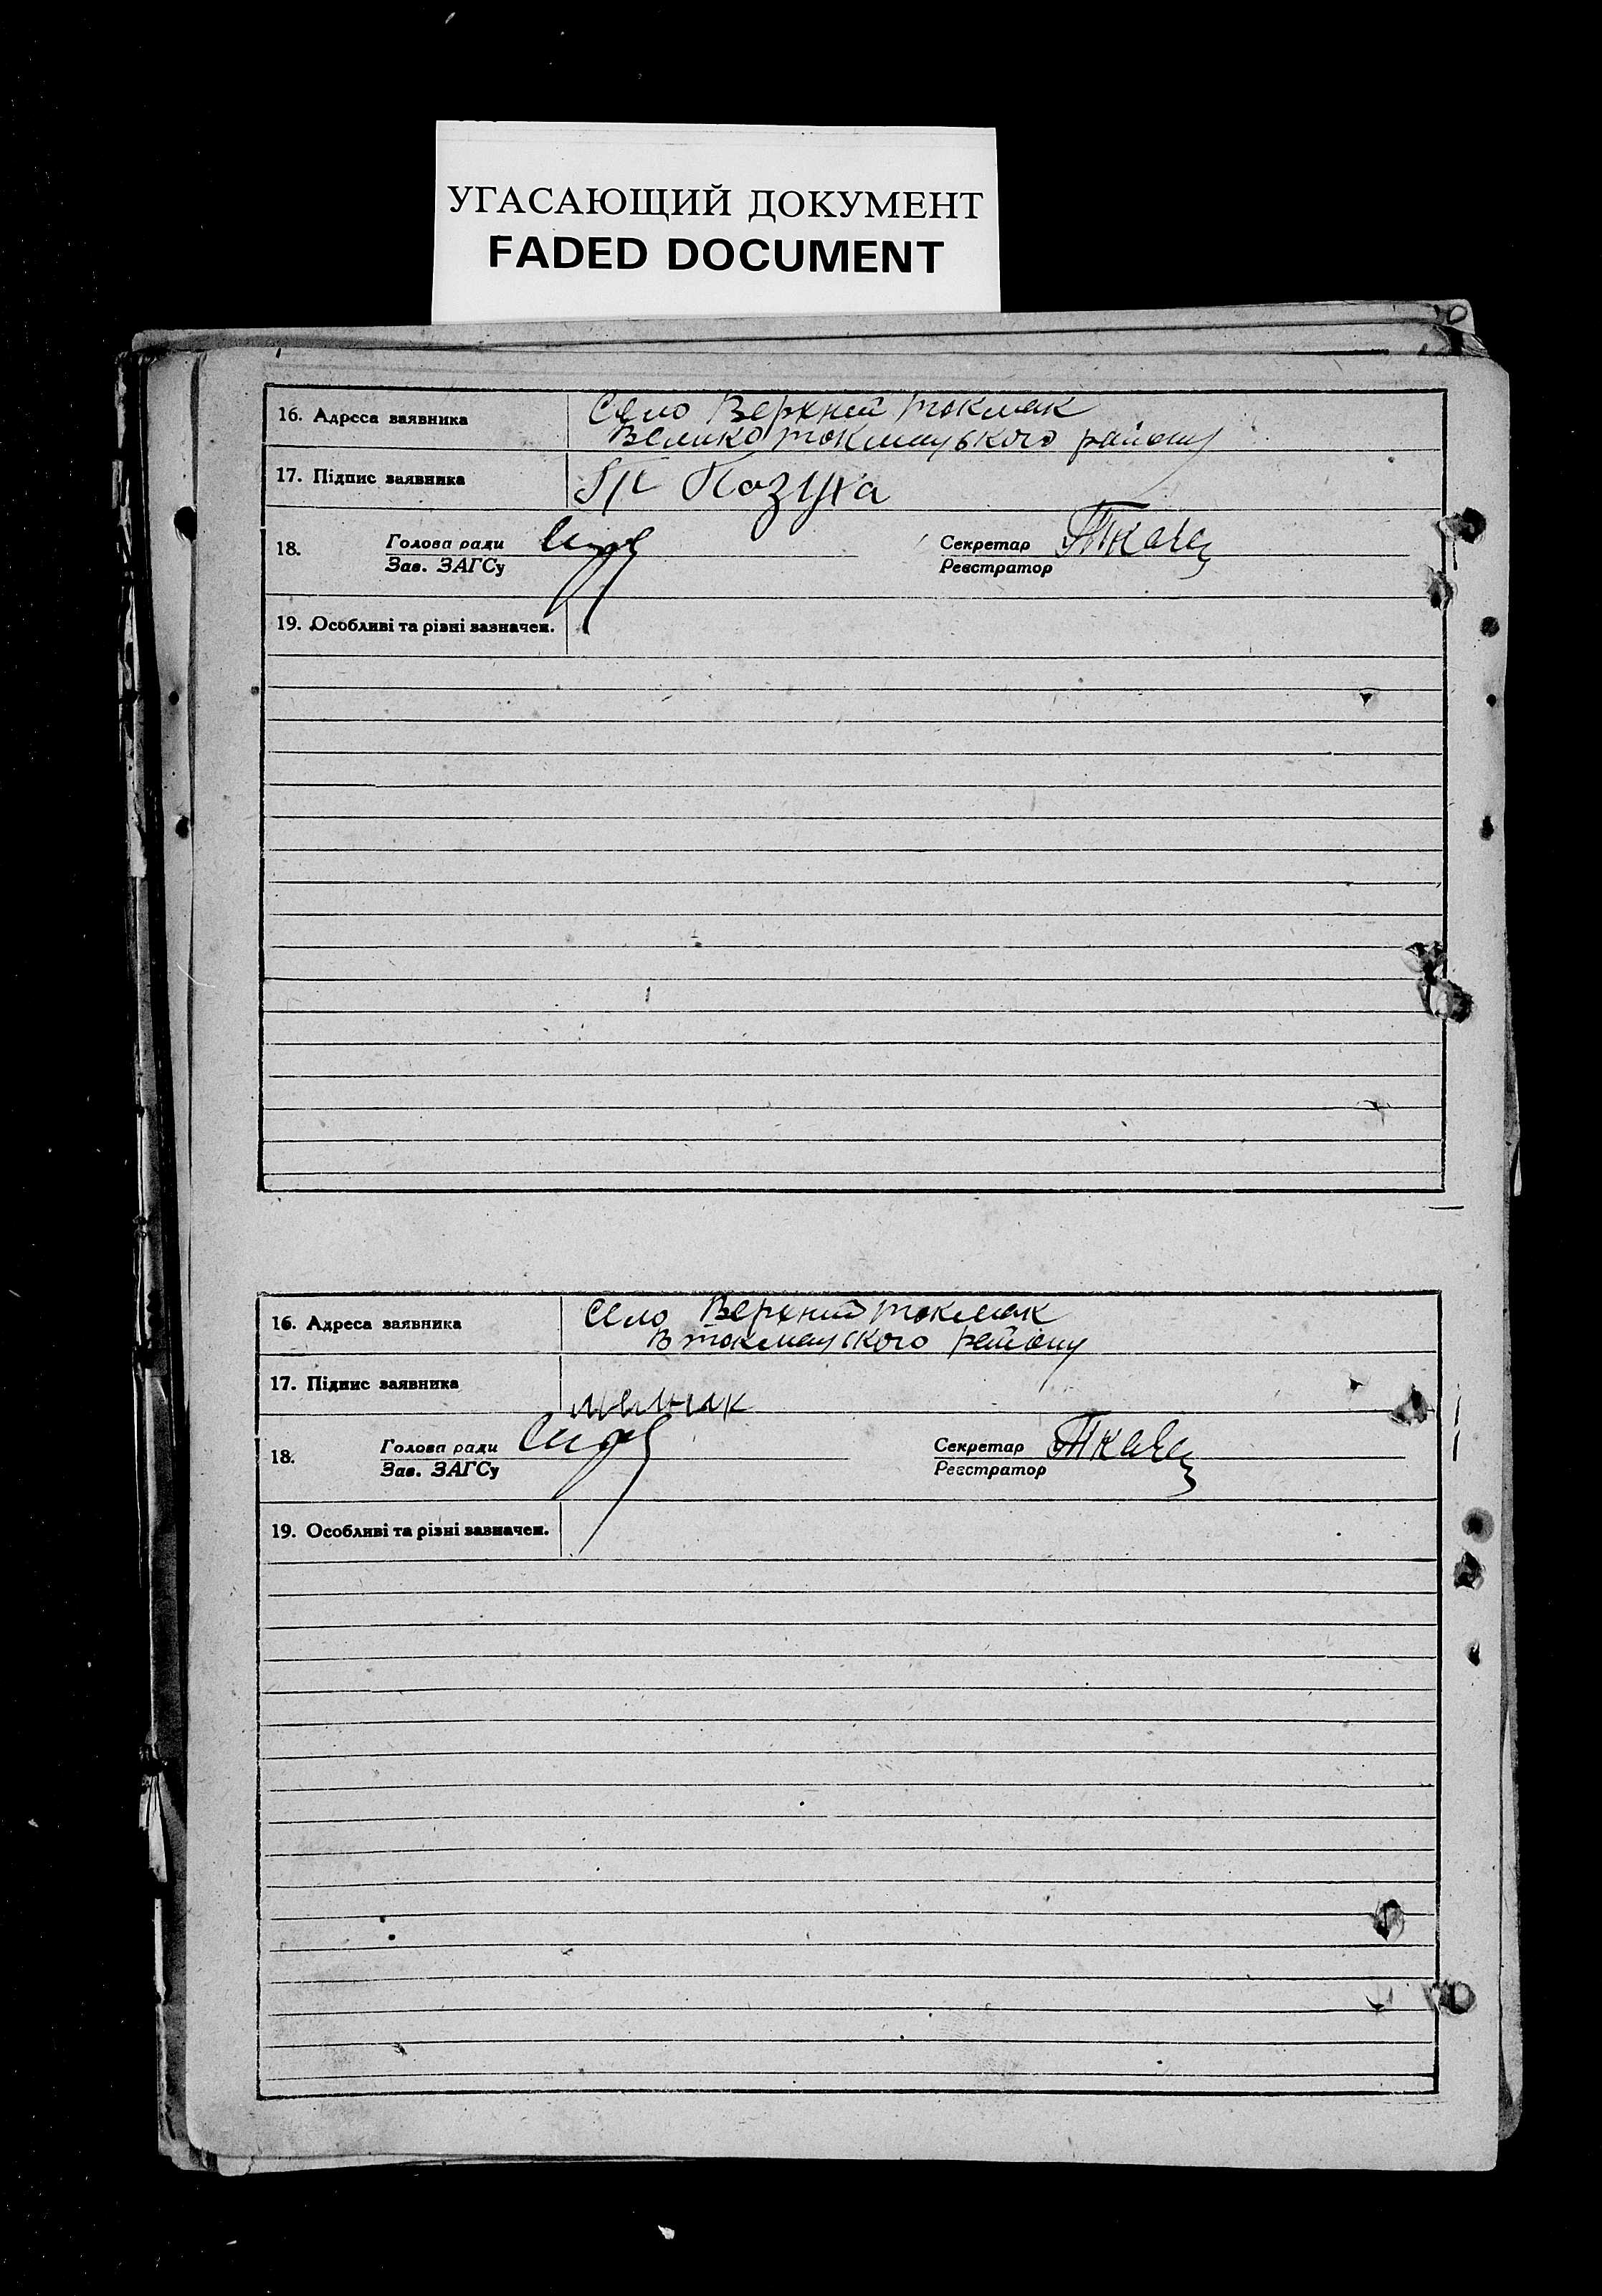 УГАСАЮЩИЙ ДОКУМЕНТ
FADED DOCUMENT
16. Адреса заявника Село Верхній Токмак
Велико Токмацького району
17. Підпис заявника Козуха
18. Голова ради Секретар Ткач
Зав. ЗАГСу Реєстратор
19. Особливі та різні зазначен.
16. Адреса заявника Село Верхний Токмак
В Токмацского району
17. Підпис заявника Мельник
18. Голова ради Секретар Ткач
Зав. ЗАГСу Реєстратор
19. Особливі та різні зазначен.